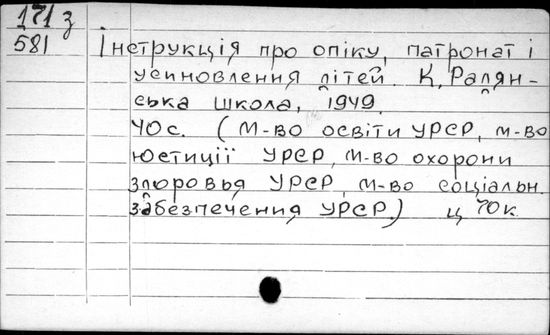 171 з
581 Інструкція про опіку, патронат і
усиновлення дітей. К, Радян-
ська школа, 1949.
40с. (М-во освіти УРСР, м-во
юстиції УРСР, м-во охорони
здоровья УРСР, м-во соціальн.
забезпечення УРСР.) ц 70к